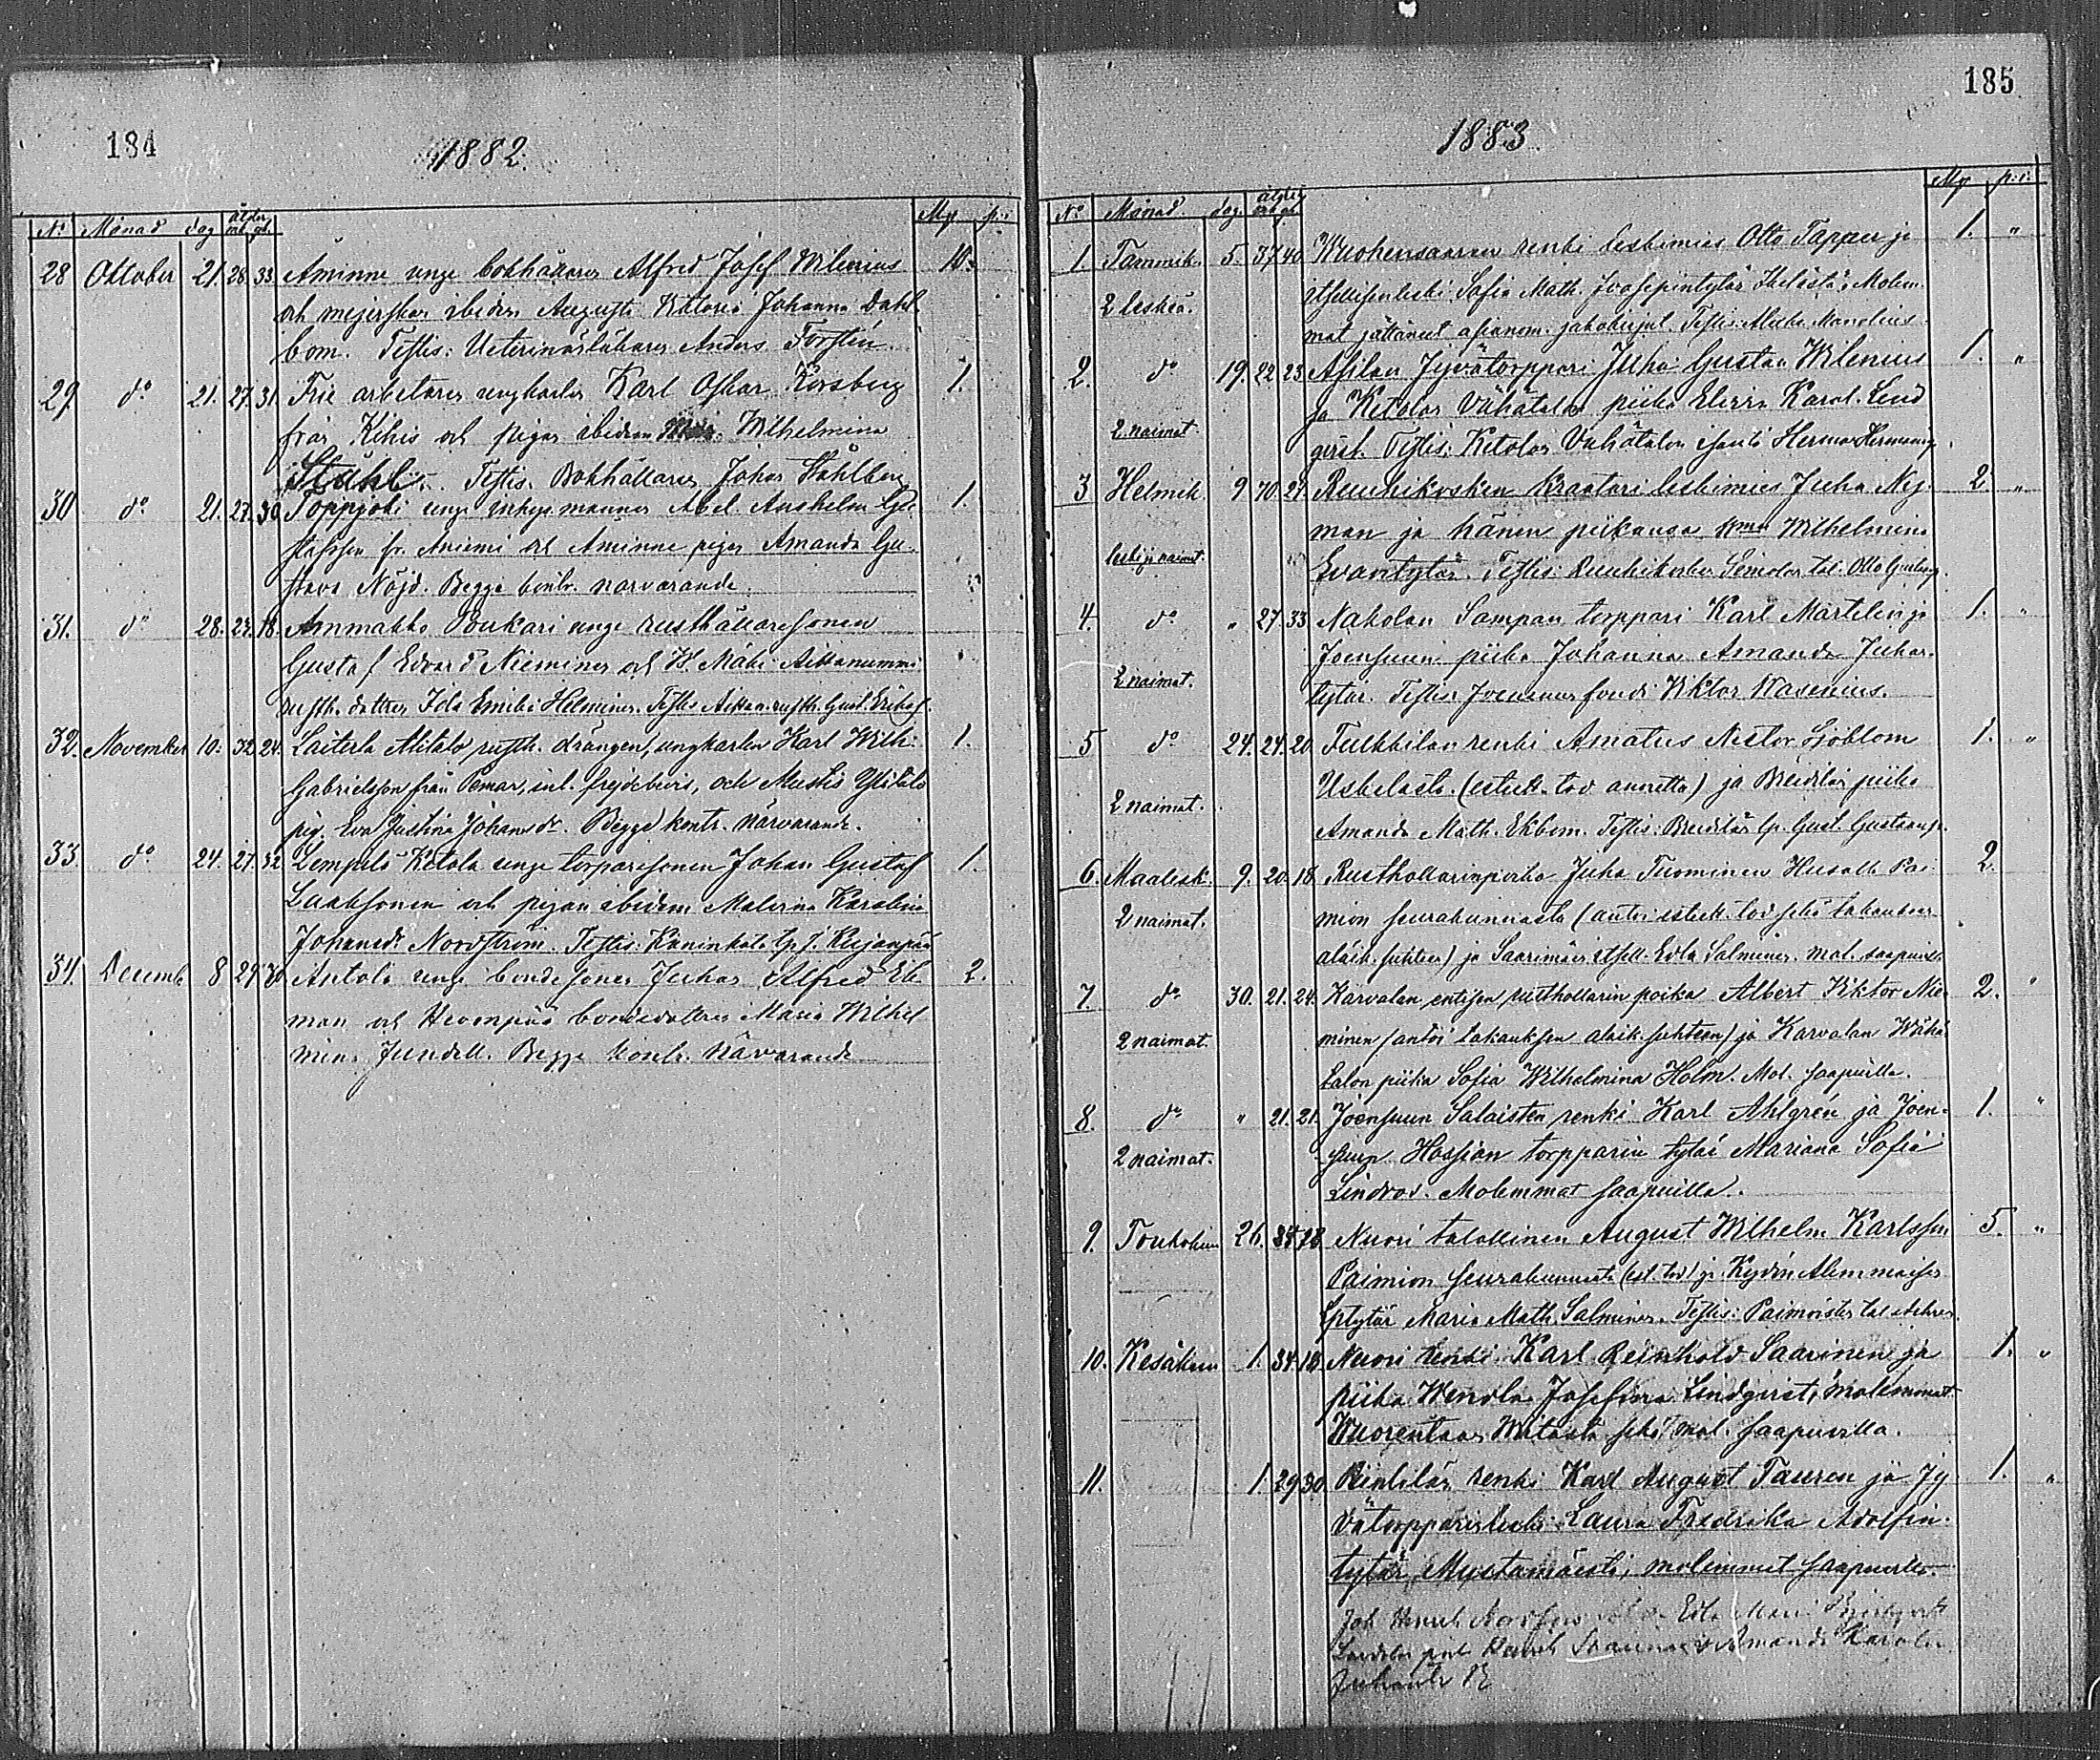 184
1882
No Månad dag ålder m. q. Mp p:i
28 Oktober 21. 28. 33. Åminne unge bokhållaren Alfred Josef Wilenius 10.
och mejerskan ibidem Augusta Viktoria Johanna Dahl
bom. Testis: Veterinärläkaren Anders Forstén.
29. do 21. 27. 31. Frie arbetaren ungkarlen Karl Oskar Korsberg 1.
från Kihis och pigan ibidem Wilhelmina
Ståhl. Testis. Bokhållaren Johan Ståhlberg
30 do 21. 27. 30 Toppjoki unge inhyse mannen Abel Anshelm Gu
stafsson fr. Aniemi och Åminne pigan Amanda Gu- 1.
stava Nöjd. Begge kontr. närvarande.
31. do 28. 23. 18. Ammakko Poukari unge rusthållaresonen
Gustaf Edvard Nieminen och Mäki Aikkanummi
rusth. dottren Ida Emilia Helminen. Testis rusth. Gust. Eriksf.
32. November 10. 32. 24. Laiterla Alitalo rusth. drängen, ungkarlen Karl Wilh: 1.
Gabrielsson från Pemar, inl. frejdebevis, och Mustis Ylitalo
pig. Eva Justina Johansdr. Begge kontr. närvarande.
33. do 24. 27. 32 Lempilä Ketola unge torparesonen Johan Gustaf 1.
Laaksonen och pigan ibidem Malvina Karolina
Johansdr Nordström. Testis: Kaninkola J. Kujanpää
34. Decemb. 8 29 30 Anttola unge bondesonen Juhan Alfred Ek 2.
man och Hevonpää bondedottren Maria Wilhel
mina Jundell. Begge kontr. Närvarande
185
1883.
No Månad. dag. ålder m. q. Mp p:i
1 Tammik. 5 37 40 Wuohensaaren renki leskimies Otto Tapper ja 1. "
2 leskeä. itsellisenleski Sofia Math. Joosepintytär Molem
mat jättäneet
2. do 19. 22 23 Asilan Jyvätorppari Juha Gustav Wilenius 1. "
ja Ketolan Vähätalon piika Elvira Karol. Lind
2. naimat. qvist. Testis: Ketolan Vähätalon isäntä Herman
3 Helmik. 9 70. 27. Ruuhikosken Kraatari leskimies Juha Ny- 2. "
man ja hänen piikansa Wilhelmina
leski ja naimat. Evantytär. Testis: Ruuhikosken
4. do " 27 33 Nakolan Sampan torppari Karl Martelin ja 1. "
Joensuun piika Johanna Amanda Juhan-
2 naimat. tytär. Testis: Joensuun fouti Viktor Wasenius.
5 do 24. 24. 20 Tulkkilan renki Amatus Nestor Sjöblom 1. "
Uskelasta. (esteett. tod. annettu) ja piika
2 naimat. Amanda Math. Ekbom. Testis: Gust. Gustavsf.
6. Maalisk. 9. 20. 18. Rusthollarinpoika Juha Tuominen Pai- 2.
2 naimat. mion seurakunnasta (antoi esteett. tod. sekä takauksen
alaik. suhteen) ja Saarimäen itsell. Edla Salminen. Mol. saapuvilla
7. do 30. 21. 24. Karvalan entisen rusthollarin poika Albert Viktor Nie- 2. "
2 naimat. minen (antoi takauksen alaik. suhteen) ja Karvalan Wähä-
talon piika Sofia Wilhelmina Holm. Mol. saapuvilla.
8. do " 21. 21. Joensuun Salaisten renki Karl Ahlgrén ja Joen- 1. "
2 naimat. suun Hossian torpparin tytär Mariana Sofia
Lindros. Molemmat saapuvilla.
9. Toukokuu 26. Nuori talollinen August Wilhelm Karlsson 5. "
Paimion seurakunnasta (est. tod) ja Kydön
tytär Maria Math. Salminen. Testis: Paimiosta
10. Kesäkuu 1. 34. 18 Nuori renki Karl Reinhold Saarinen ja 1. "
piika Wendla Josefina Lindqvist, molemmat
Wuorentaan sekä mol. saapuvilla.
11. 1. 29 30 Pintilän renki Karl August Tauren ja Jy 1. "
vätorpparinleski Laura Fredrika Adolfin-
tytär, Mustamäestä, molemmat saapuvilla.
Joh Henrik Edla Maria
Amanda Karolin